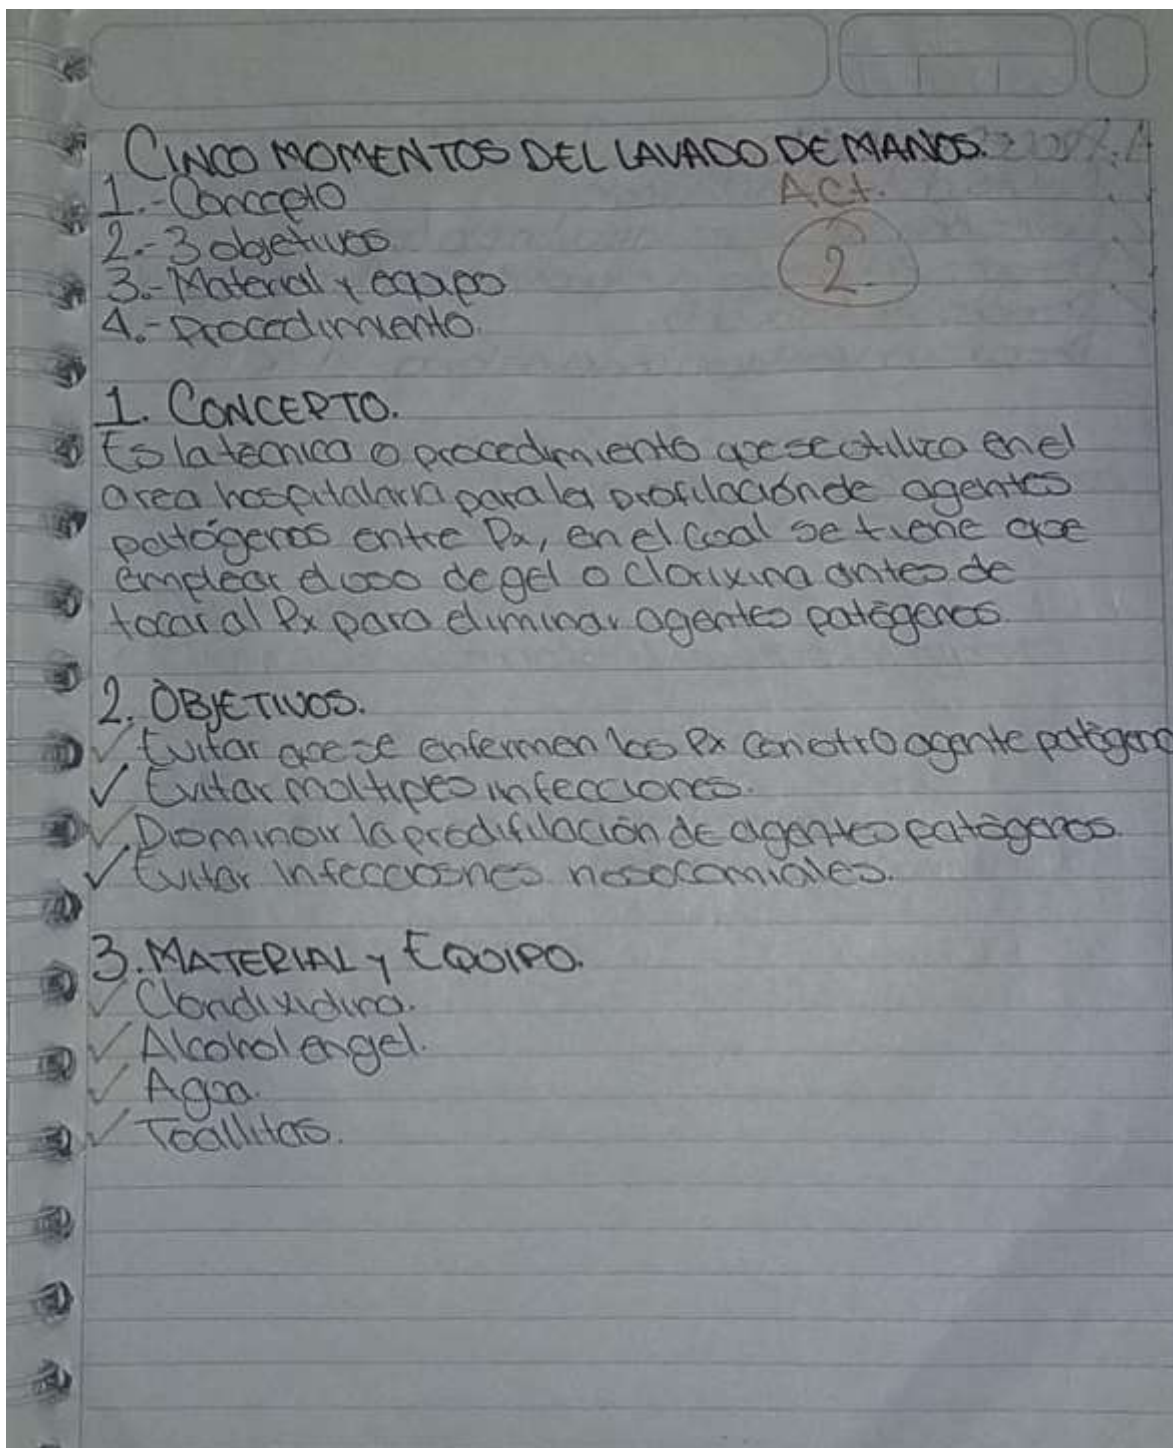 CINCO MOMENTOS DEL LAVADO DE MANOS.
Act.
1.-Concepto
2.-3 objetivos
2
3.-Material y equipo
4.-Procedimiento.
1. CONCEPTO.
Es la técnica o procedimiento que se utiliza en el
area hospitalaria para la profilación de agentes
patógenos entre Px, en el cual se tiene que
emplear el uso de gel o clorixina antes de
tocar al Px para eliminar agentes patógenos.
2. OBJETIVOS.
✓ Evitar que se enfermen los Px con otro agente patógeno
✓ Evitar multiples infecciones.
✓ Disminuir la predifilación de agentes patógenos.
✓ Evitar infecciosnes nosocomiales.
3. MATERIAL y EQUIPO.
✓ Clondixidina.
✓ Alcohol en gel.
✓ Agua.
✓ Toallitas.